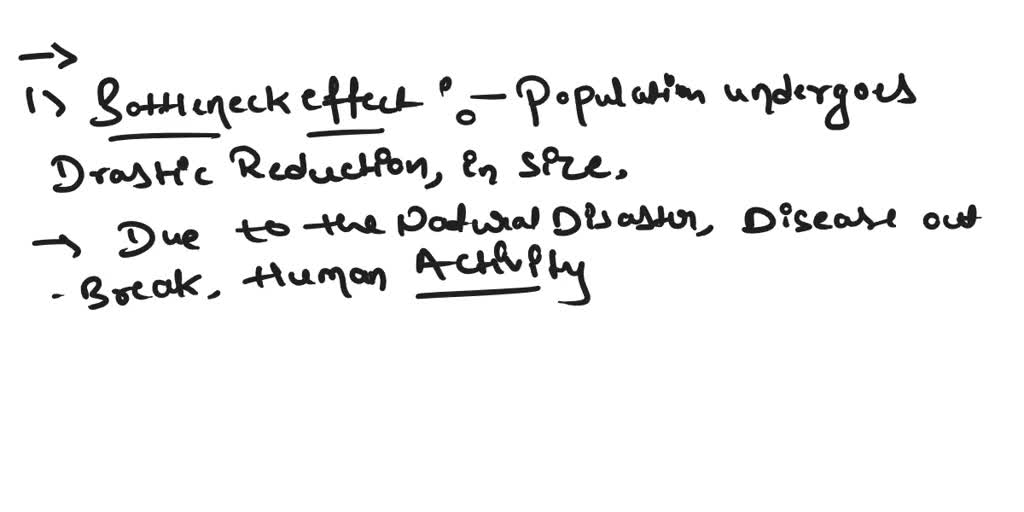 →
1) Bottleneck effect :- Population undergoes
Drastic Reduction, in size.
→ Due to the Natural Disaster, Disease out
- Break, Human Activity